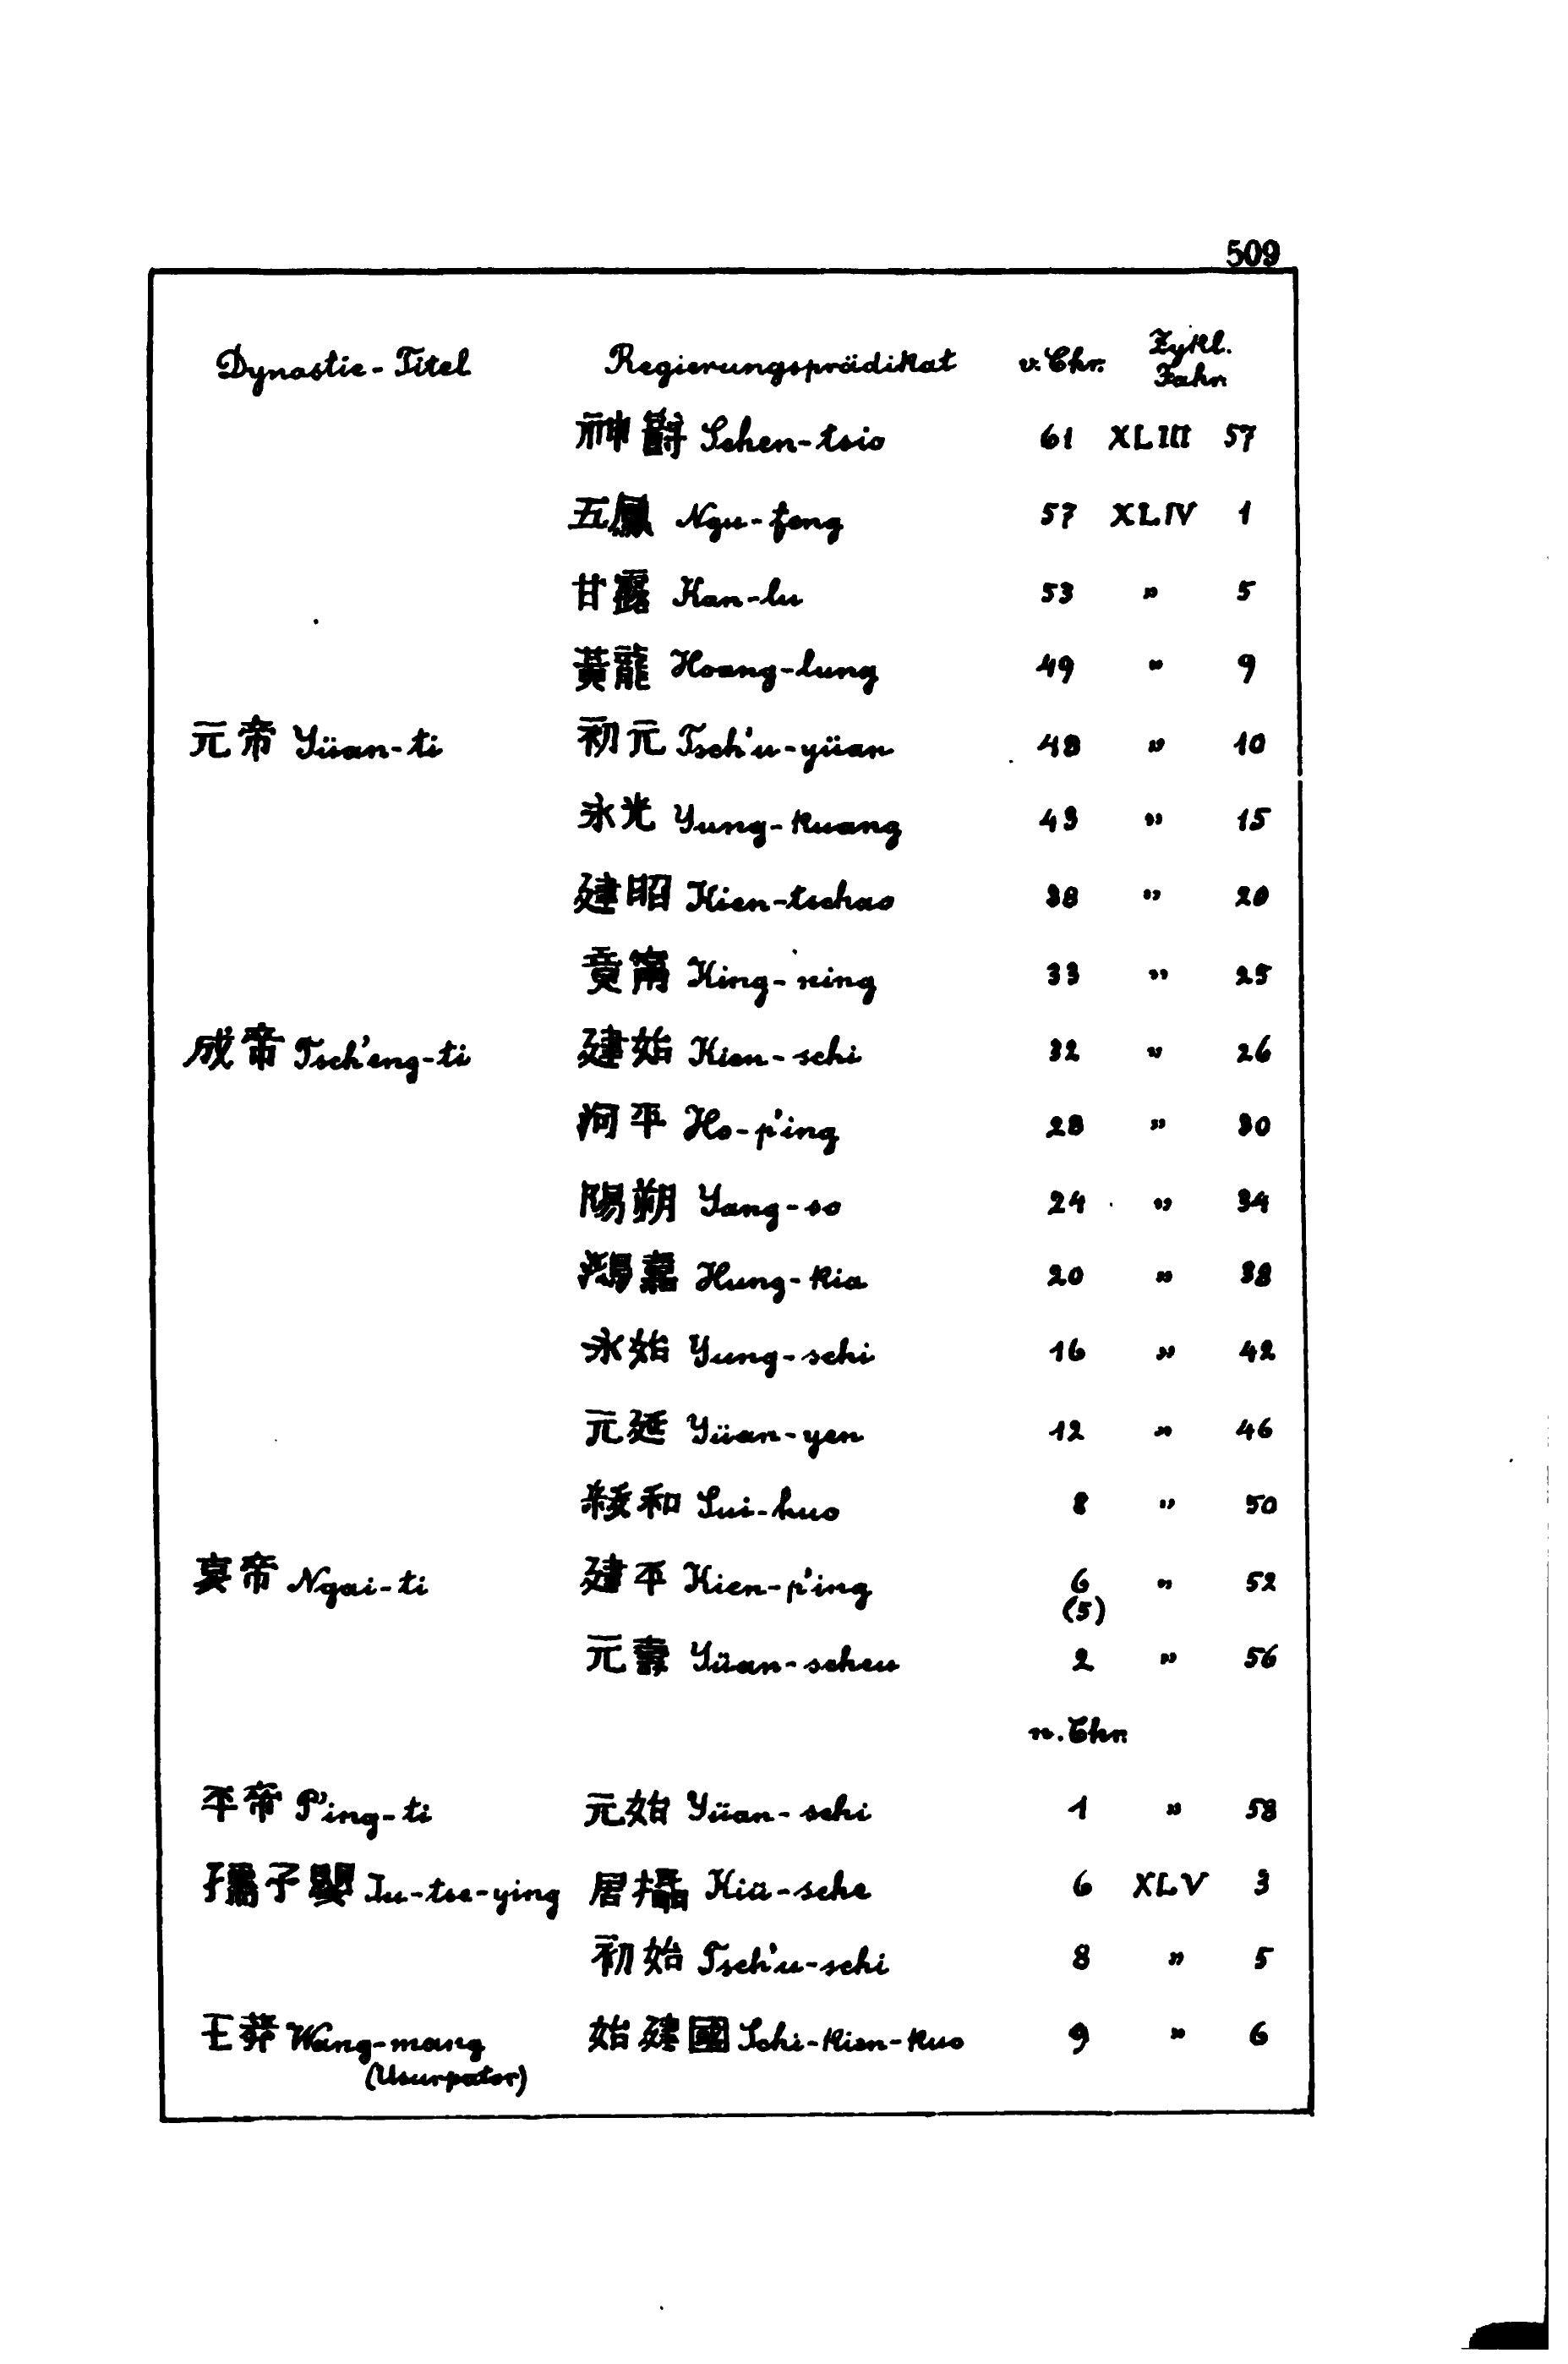 509
Dynastie-Titel Regierungsprädikat v. Chr. Zykl. Jahr.
神爵 Schen-tsio 61 XLIII 57
五鳳 Ngu-fong 57 XLIV 1
甘露 Kan-lu 53 " 5
黃龍 Hoang-lung 49 " 9
元帝 Yüan-ti 初元 Tsch'u-yüan 48 " 10
永光 Yung-kuang 43 " 15
建昭 Kien-tschao 38 " 20
竟甯 King-ning 33 " 25
成帝 Tsch'eng-ti 建始 Kien-schi 32 " 26
河平 Ho-p'ing 28 " 30
陽朔 Yang-so 24 " 34
鴻嘉 Hung-kia 20 " 38
永始 Yung-schi 16 " 42
元延 Yüan-yen 12 " 46
綏和 Sui-huo 8 " 50
哀帝 Ngai-ti 建平 Kien-p'ing 6 " 52
(5)
元壽 Yüan-scheu 2 " 56
n. Chr.
平帝 P'ing-ti 元始 Yüan-schi 1 " 58
孺子嬰 Ju-tse-ying 居攝 Kiü-sche 6 XLV 3
初始 Tsch'u-schi 8 " 5
王莽 Wang-mang 始建國 Schi-kien-kuo 9 " 6
(Usurpator)